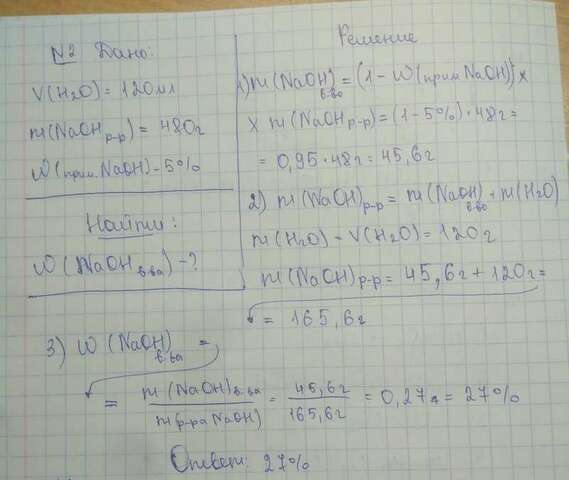 N2 Дано:
V(H₂O) = 120мл
m(NaOH р-р) = 480г
W(прим. NaOH) - 5%
Найти:
W(NaOH в-ва) - ?
Решение
1) m(NaOH) в-во = (1 - W(прим NaOH)) ×
× m(NaOH р-р) = (1-5%)·48г =
= 0,95·48г = 45,6г
2) m(NaOH) р-р = m(NaOH) в-во + m(H₂O)
m(H₂O) - V(H₂O) = 120г
m(NaOH) р-р = 45,6г + 120г =
= 165,6г
3) W(NaOH) в-ва =
= m(NaOH) в-ва / m(р-ра NaOH) = 45,6г / 165,6г = 0,27 = 27%
Ответ: 27%